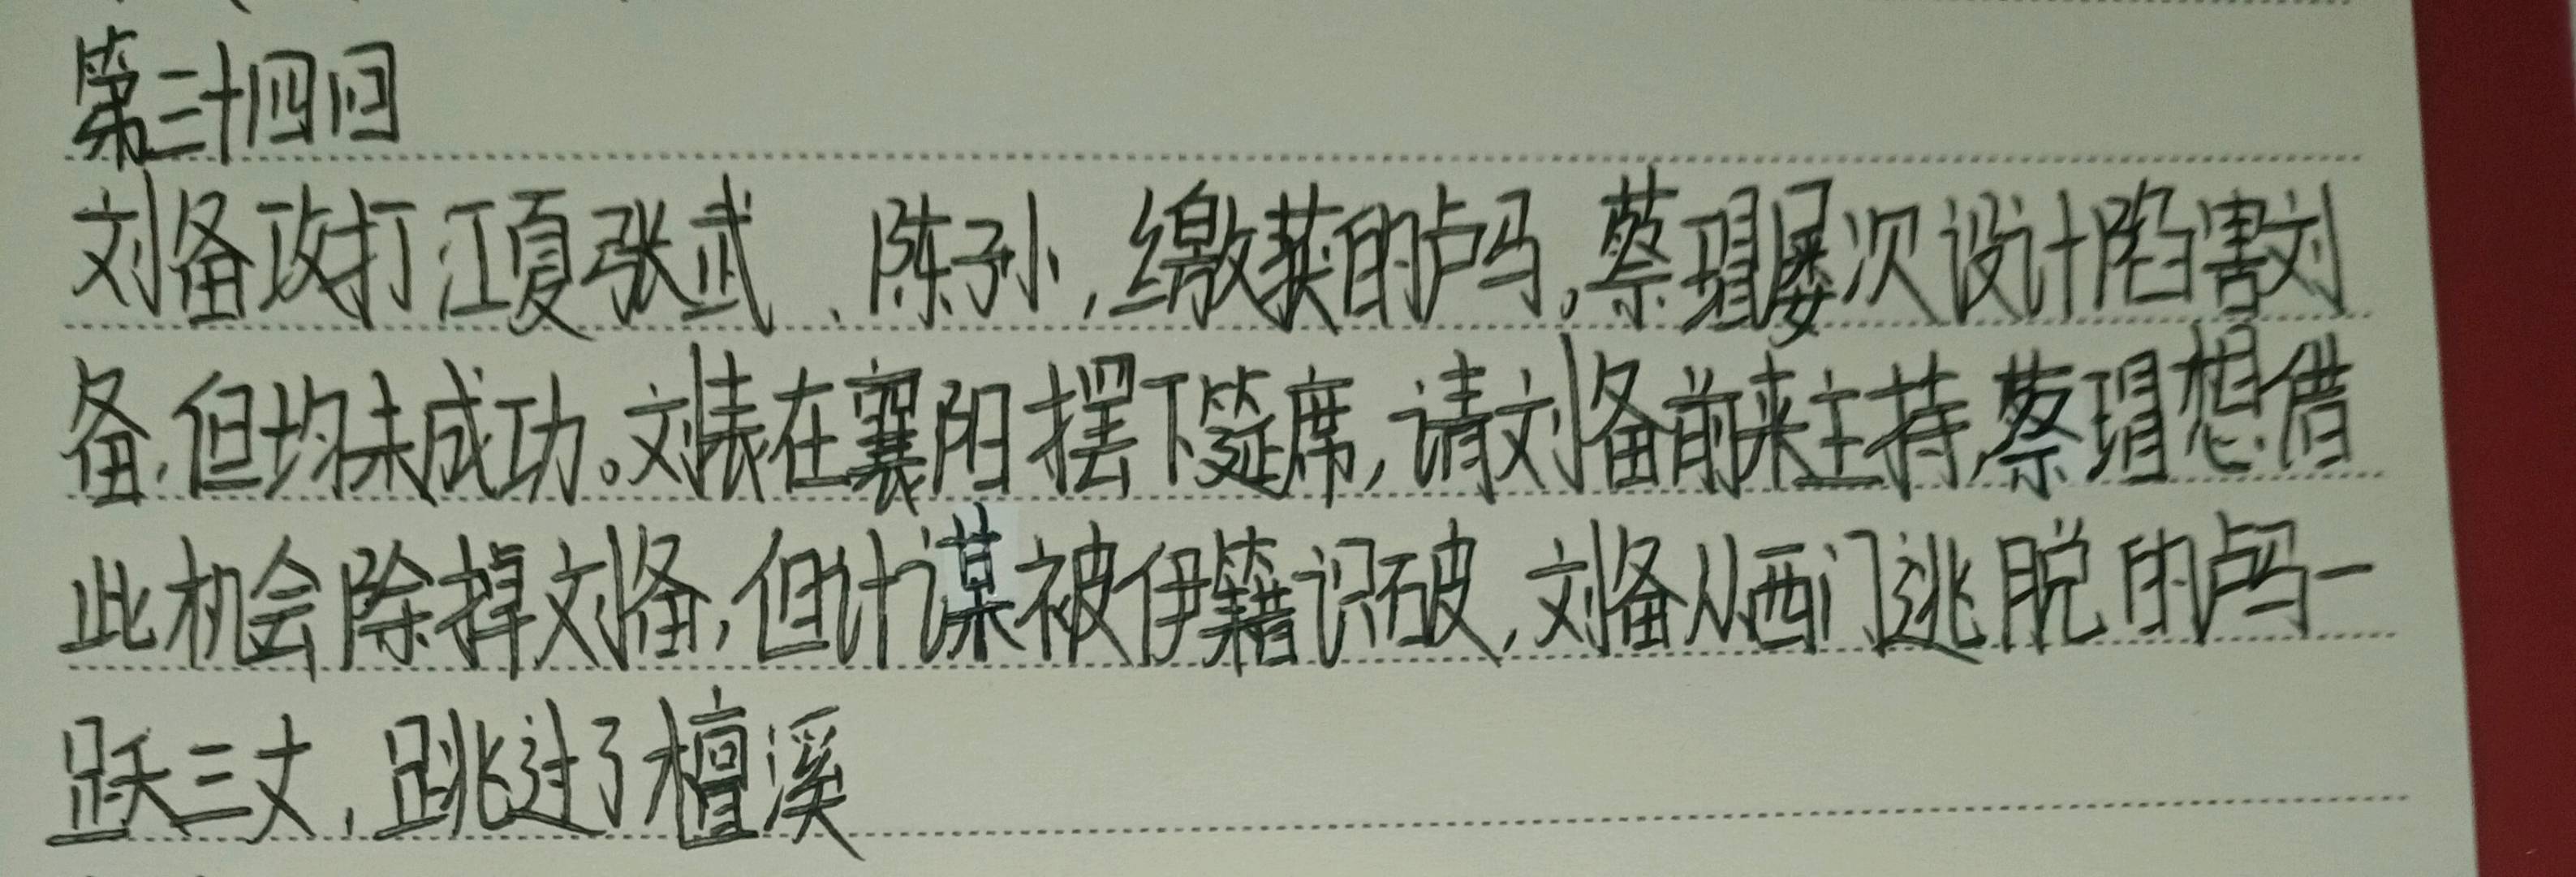 第三十四回
刘备攻打江夏张武、陈孙,缴获的卢马,蔡瑁屡次设计陷害刘
备,但均未成功。刘表在襄阳摆下筵席,请刘备前来主持,蔡瑁想借
此机会除掉刘备,但计谋被伊籍识破,刘备从西门逃脱的卢马一
跃三丈,跳过了檀溪